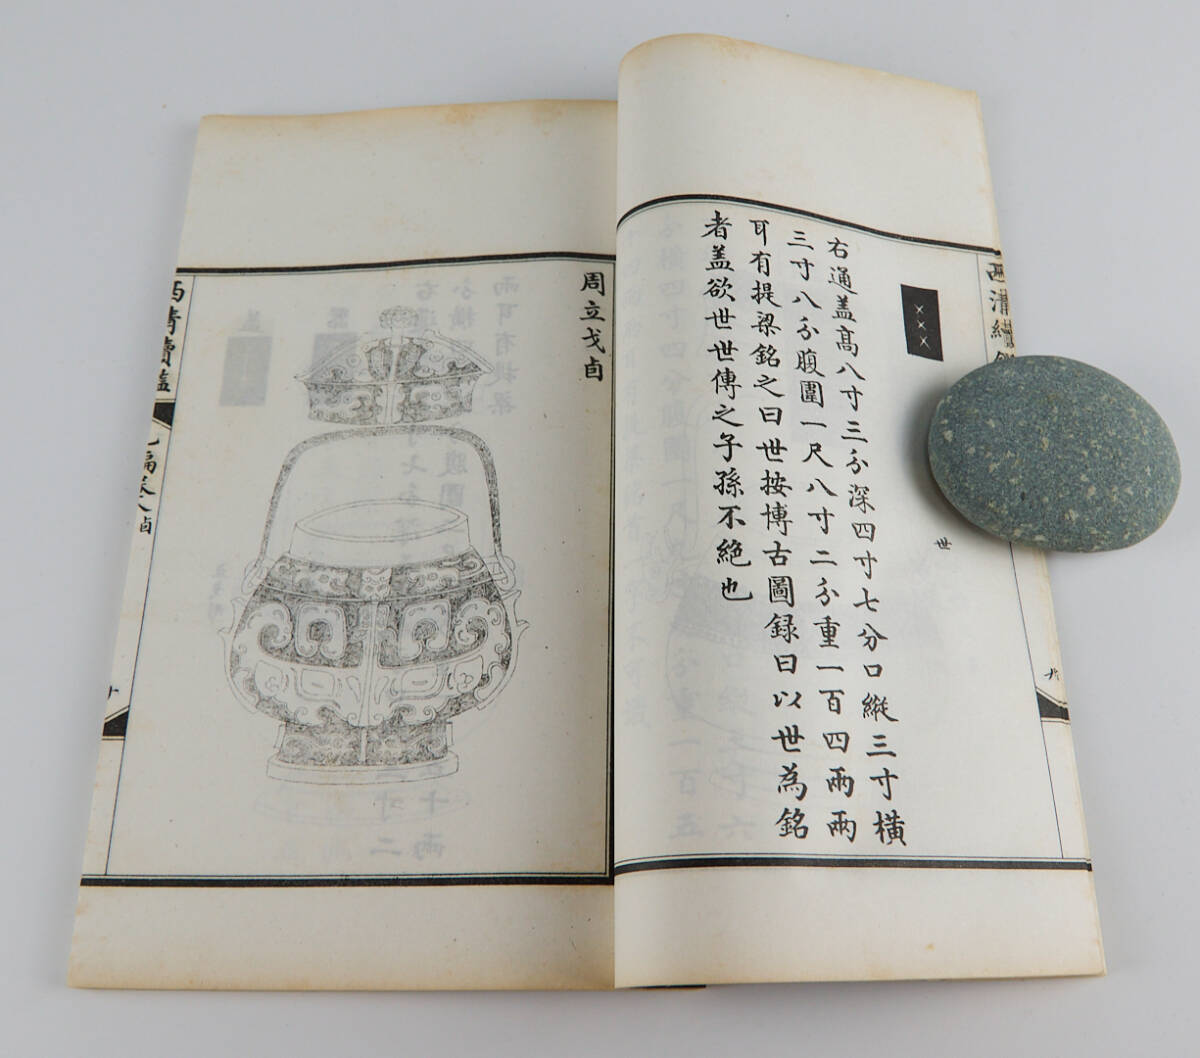 西清續鑑
世
右通盖髙八寸三分深四寸七分口縱三寸橫
三寸八分腹圍一尺八寸二分重一百四兩兩
耳有提梁銘之曰世按博古圖録曰以世為銘
者盖欲世世傳之子孫不絕也
周立戈卣
西清續鑑
乙編卷八 卣
十